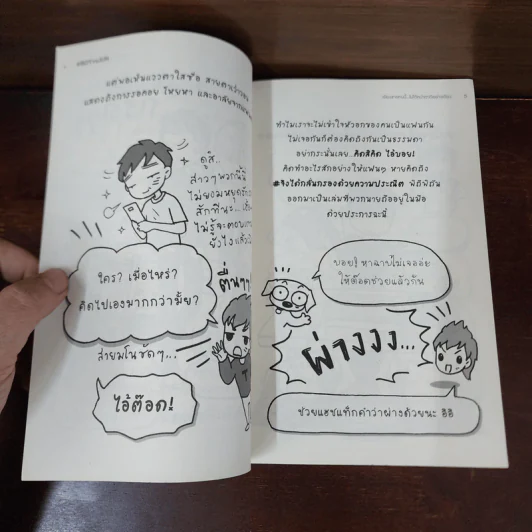 แต่พอเห็นแววตาใสซื่อ สายตาเว้าวอน
แสดงถึงการรอคอย โหยหา และอาลัยจาก
ดูสิ..
สาวๆพวกนี้นี่
ไม่ยอมหยุดรัก
สักทีนะ...
ไม่รู้จะตอบแทน
ยังไงแล้ว
ใคร? เมื่อไหร่?
คิดไปเองมากกว่ามั้ย?
ตื่นๆๆ
สายมโนชัดๆ...
ไอ้ต๊อด!
5
ทำไมเราจะไม่เข้าใจหัวอกของคนเป็นแฟนกัน
ไม่เจอกันก็ต้องคิดถึงกันเป็นธรรมดา
อย่ากระนั้นเลย..คิดสิคิด ไอ้บอย!
คิดทำอะไรสักอย่างให้แฟนๆ หายคิดถึง
จึงได้กลั่นกรองด้วยความประณีต พิถีพิถัน
ออกมาเป็นเล่มที่พวกนายถืออยู่ในมือ
ด้วยประการฉะนี้
บอย! หาฉาบไม่เจออ่ะ
ให้ต๊อดช่วยแล้วกัน
ผ่างงง...
ช่วยแฮชแท็กคำว่าผ่างด้วยนะ อิอิ